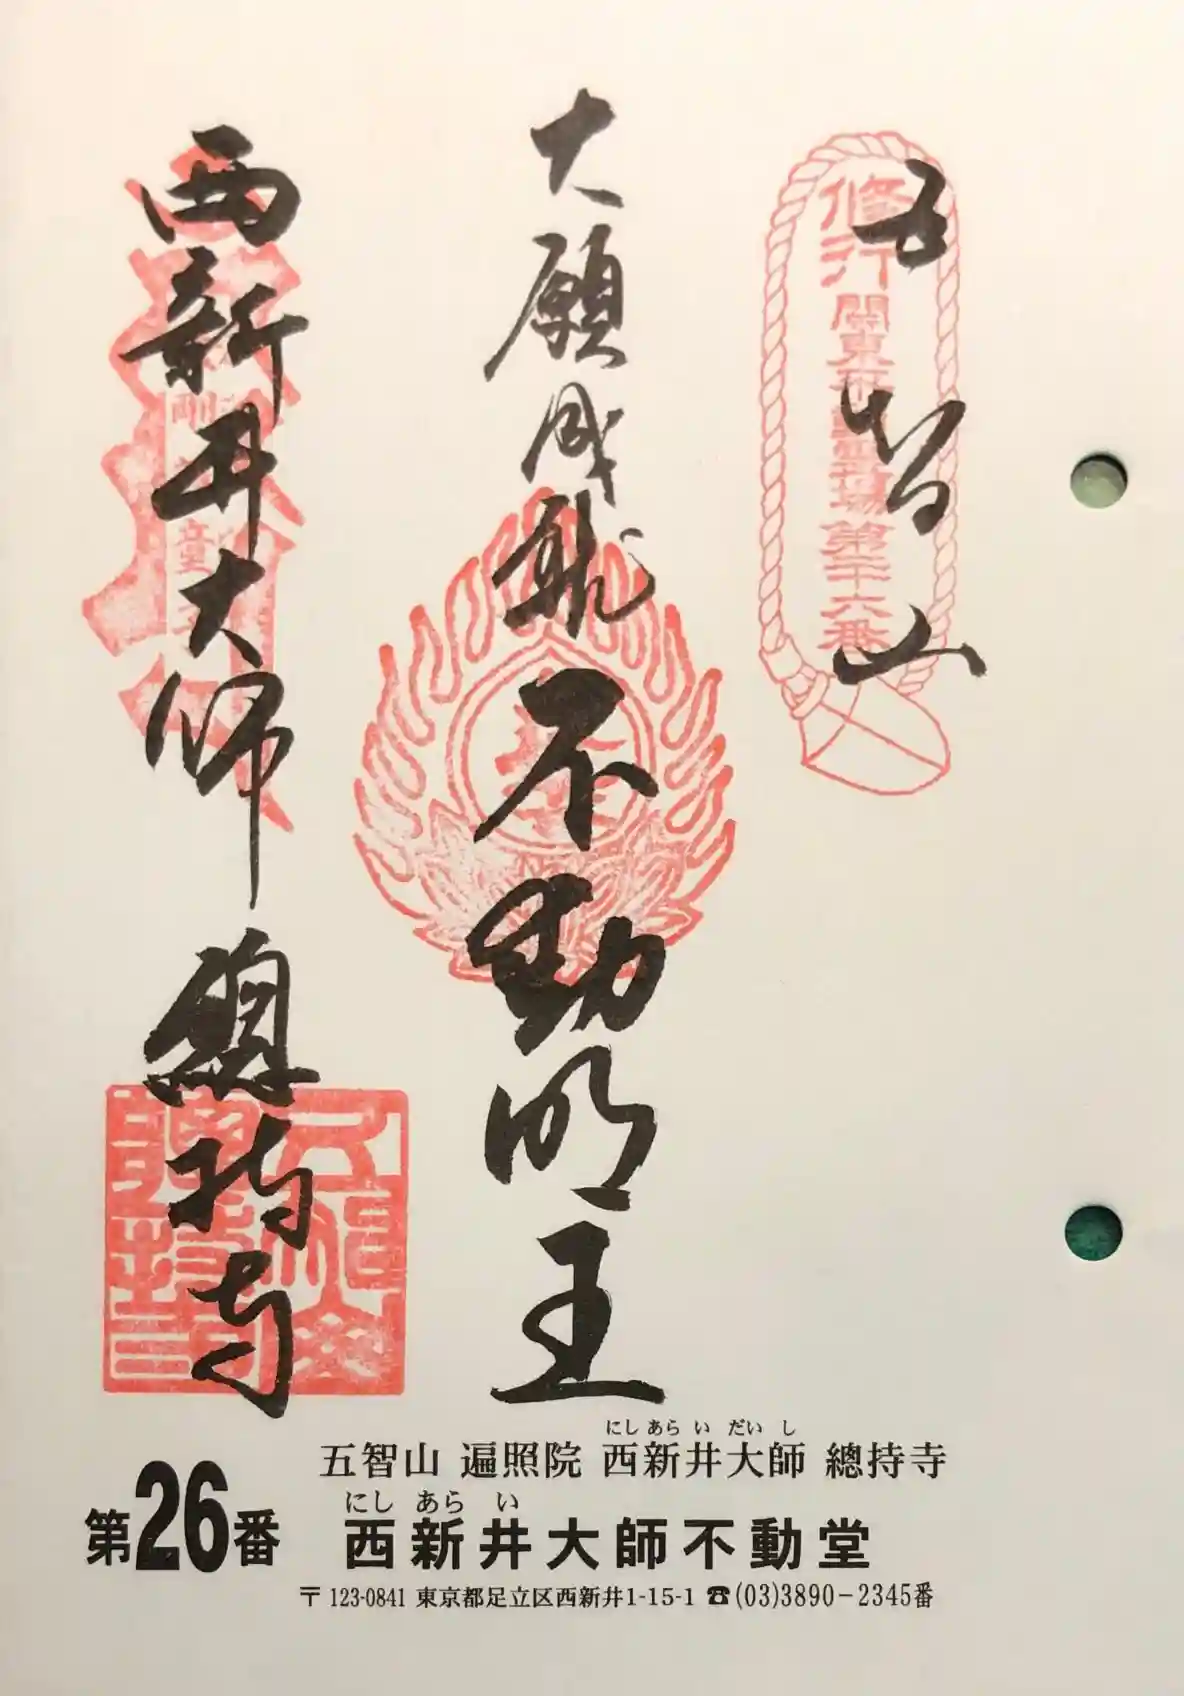 五智山
修行
関東不動霊場第二十六番
大願成就 不動明王
西新井大師 總持寺
五智山 遍照院 西新井大師 總持寺
にし あら い だい し
第26番
西新井大師不動堂
にし あら い
〒123-0841 東京都足立区西新井1-15-1 ☎(03)3890-2345番